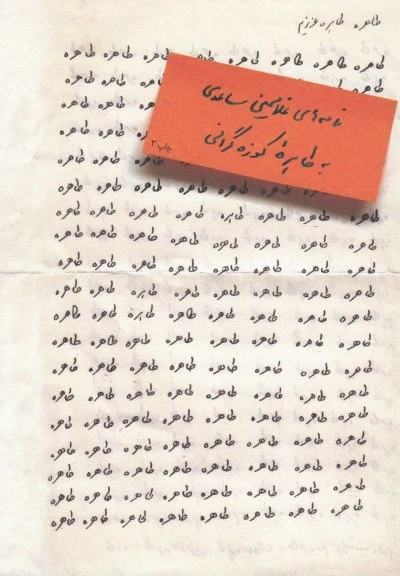 طاهره طاهره عزیزم
طاهره طاهره طاهره طاهره طاهره طاهره طاهره طاهره
طاهره طاهره طاهره
طاهره طاهره
طاهره طاهره
نامه‌های غلامحسین ساعدی
به طاهره کوزه‌گرانی
چاپ ۲
طاهره طاهره
طاهره طاهره طاهره طاهره
طاهره طاهره طاهره طاهره طاهره طاهره طاهره طاهره
طاهره طاهره طاهره طاهره طاهره طاهره طاهره طاهره
طاهره طاهره طاهره طاهره طاهره طاهره طاهره طاهره
طاهره طاهره طاهره طاهره طاهره طاهره طاهره طاهره
طاهره طاهره طاهره طاهره طاهره طاهره طاهره طاهره
طاهره طاهره طاهره طاهره طاهره طاهره طاهره طاهره
طاهره طاهره طاهره طاهره طاهره طاهره طاهره طاهره
طاهره طاهره طاهره طاهره طاهره طاهره طاهره طاهره
طاهره طاهره طاهره طاهره طاهره طاهره طاهره طاهره
طاهره طاهره طاهره طاهره طاهره طاهره طاهره طاهره
طاهره طاهره طاهره طاهره طاهره طاهره طاهره طاهره
طاهره طاهره طاهره طاهره طاهره طاهره طاهره طاهره
طاهره طاهره طاهره طاهره طاهره طاهره طاهره طاهره